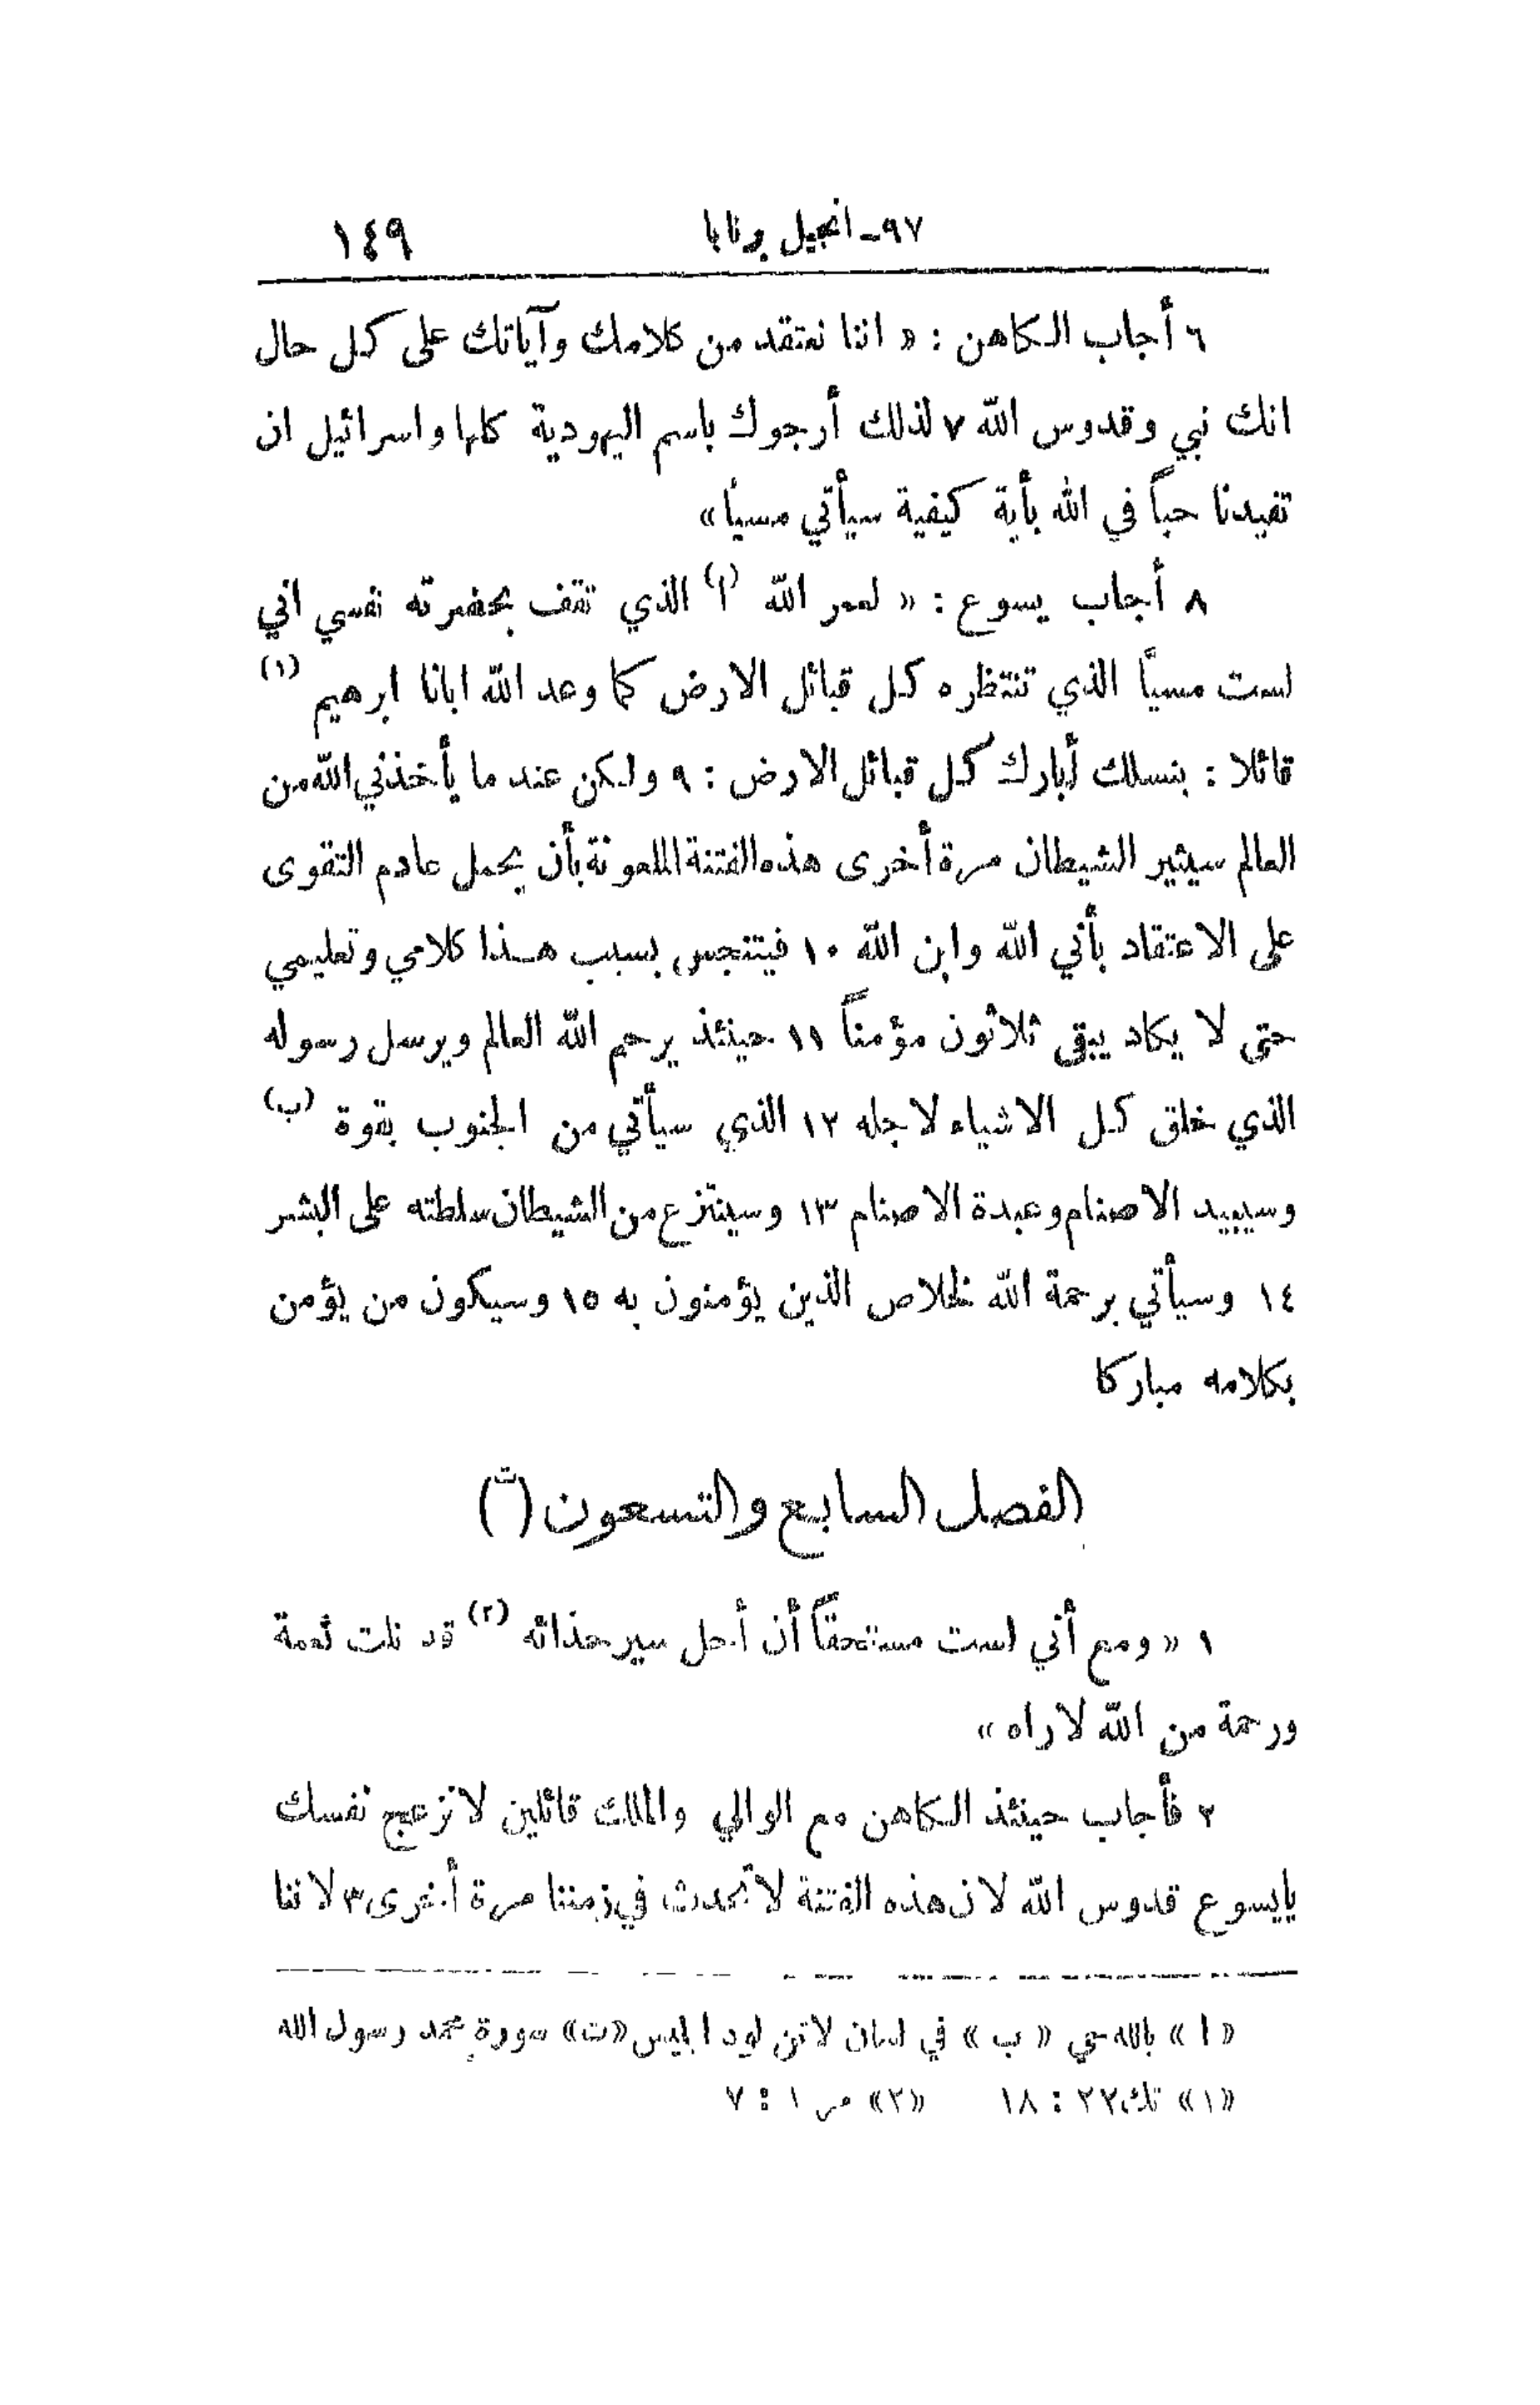 ٩٧ـ انجيل برنابا ١٤٩
٦ أجاب الكاهن : « اننا نعتقد من كلامك وآياتك على كل حال
انك نبي وقدوس الله ٧ لذلك أرجوك باسم اليهودية كلها واسرائيل ان
تفيدنا حباً في الله بأية كيفية سيأتي مسيا»
٨ أجاب يسوع : « لعمر الله (ا) الذي تقف بحضرته نفسي اني
لست مسيا الذي تنتظره كل قبائل الارض كما وعد الله ابانا ابرهيم (١)
قائلا : بنسلك أبارك كل قبائل الارض : ٩ ولكن عند ما يأخذني الله من
العالم سيثير الشيطان مرة أخرى هذه الفتنة الملعونة بأن يحمل عادم التقوى
على الاعتقاد بأني الله وابن الله ١٠ فيتنجس بسبب هـذا كلامي وتعليمي
حتى لا يكاد يبقى ثلاثون مؤمناً ١١ حينئذ يرحم الله العالم ويرسل رسوله
الذي خلق كل الاشياء لاجله ١٢ الذي سيأتي من الجنوب بقوة (ب)
وسيبيد الاصنام وعبدة الاصنام ١٣ وسينتزع من الشيطان سلطته على البشر
١٤ وسيأتي برحمة الله لخلاص الذين يؤمنون به ١٥ وسيكون من يؤمن
بكلامه مباركا
الفصل السابع والتسعون (ت)
١ « ومع أني لست مستحقاً أن أحل سير حذائه (٢) قد نلت نعمة
ورحمة من الله لاراه »
٢ فأجاب حينئذ الكاهن مع الوالي والملك قائلين لا تزعج نفسك
يايسوع قدوس الله لان هذه الفتنة لا تحدث في زمننا مرة أخرى ٣ لاننا
« ا » بالله حي « ب » في لسان لاتن لود ابليس «ت» سورة محمد رسول الله
«١» تك ٢٢ : ١٨ «٢» مر ١ : ٧